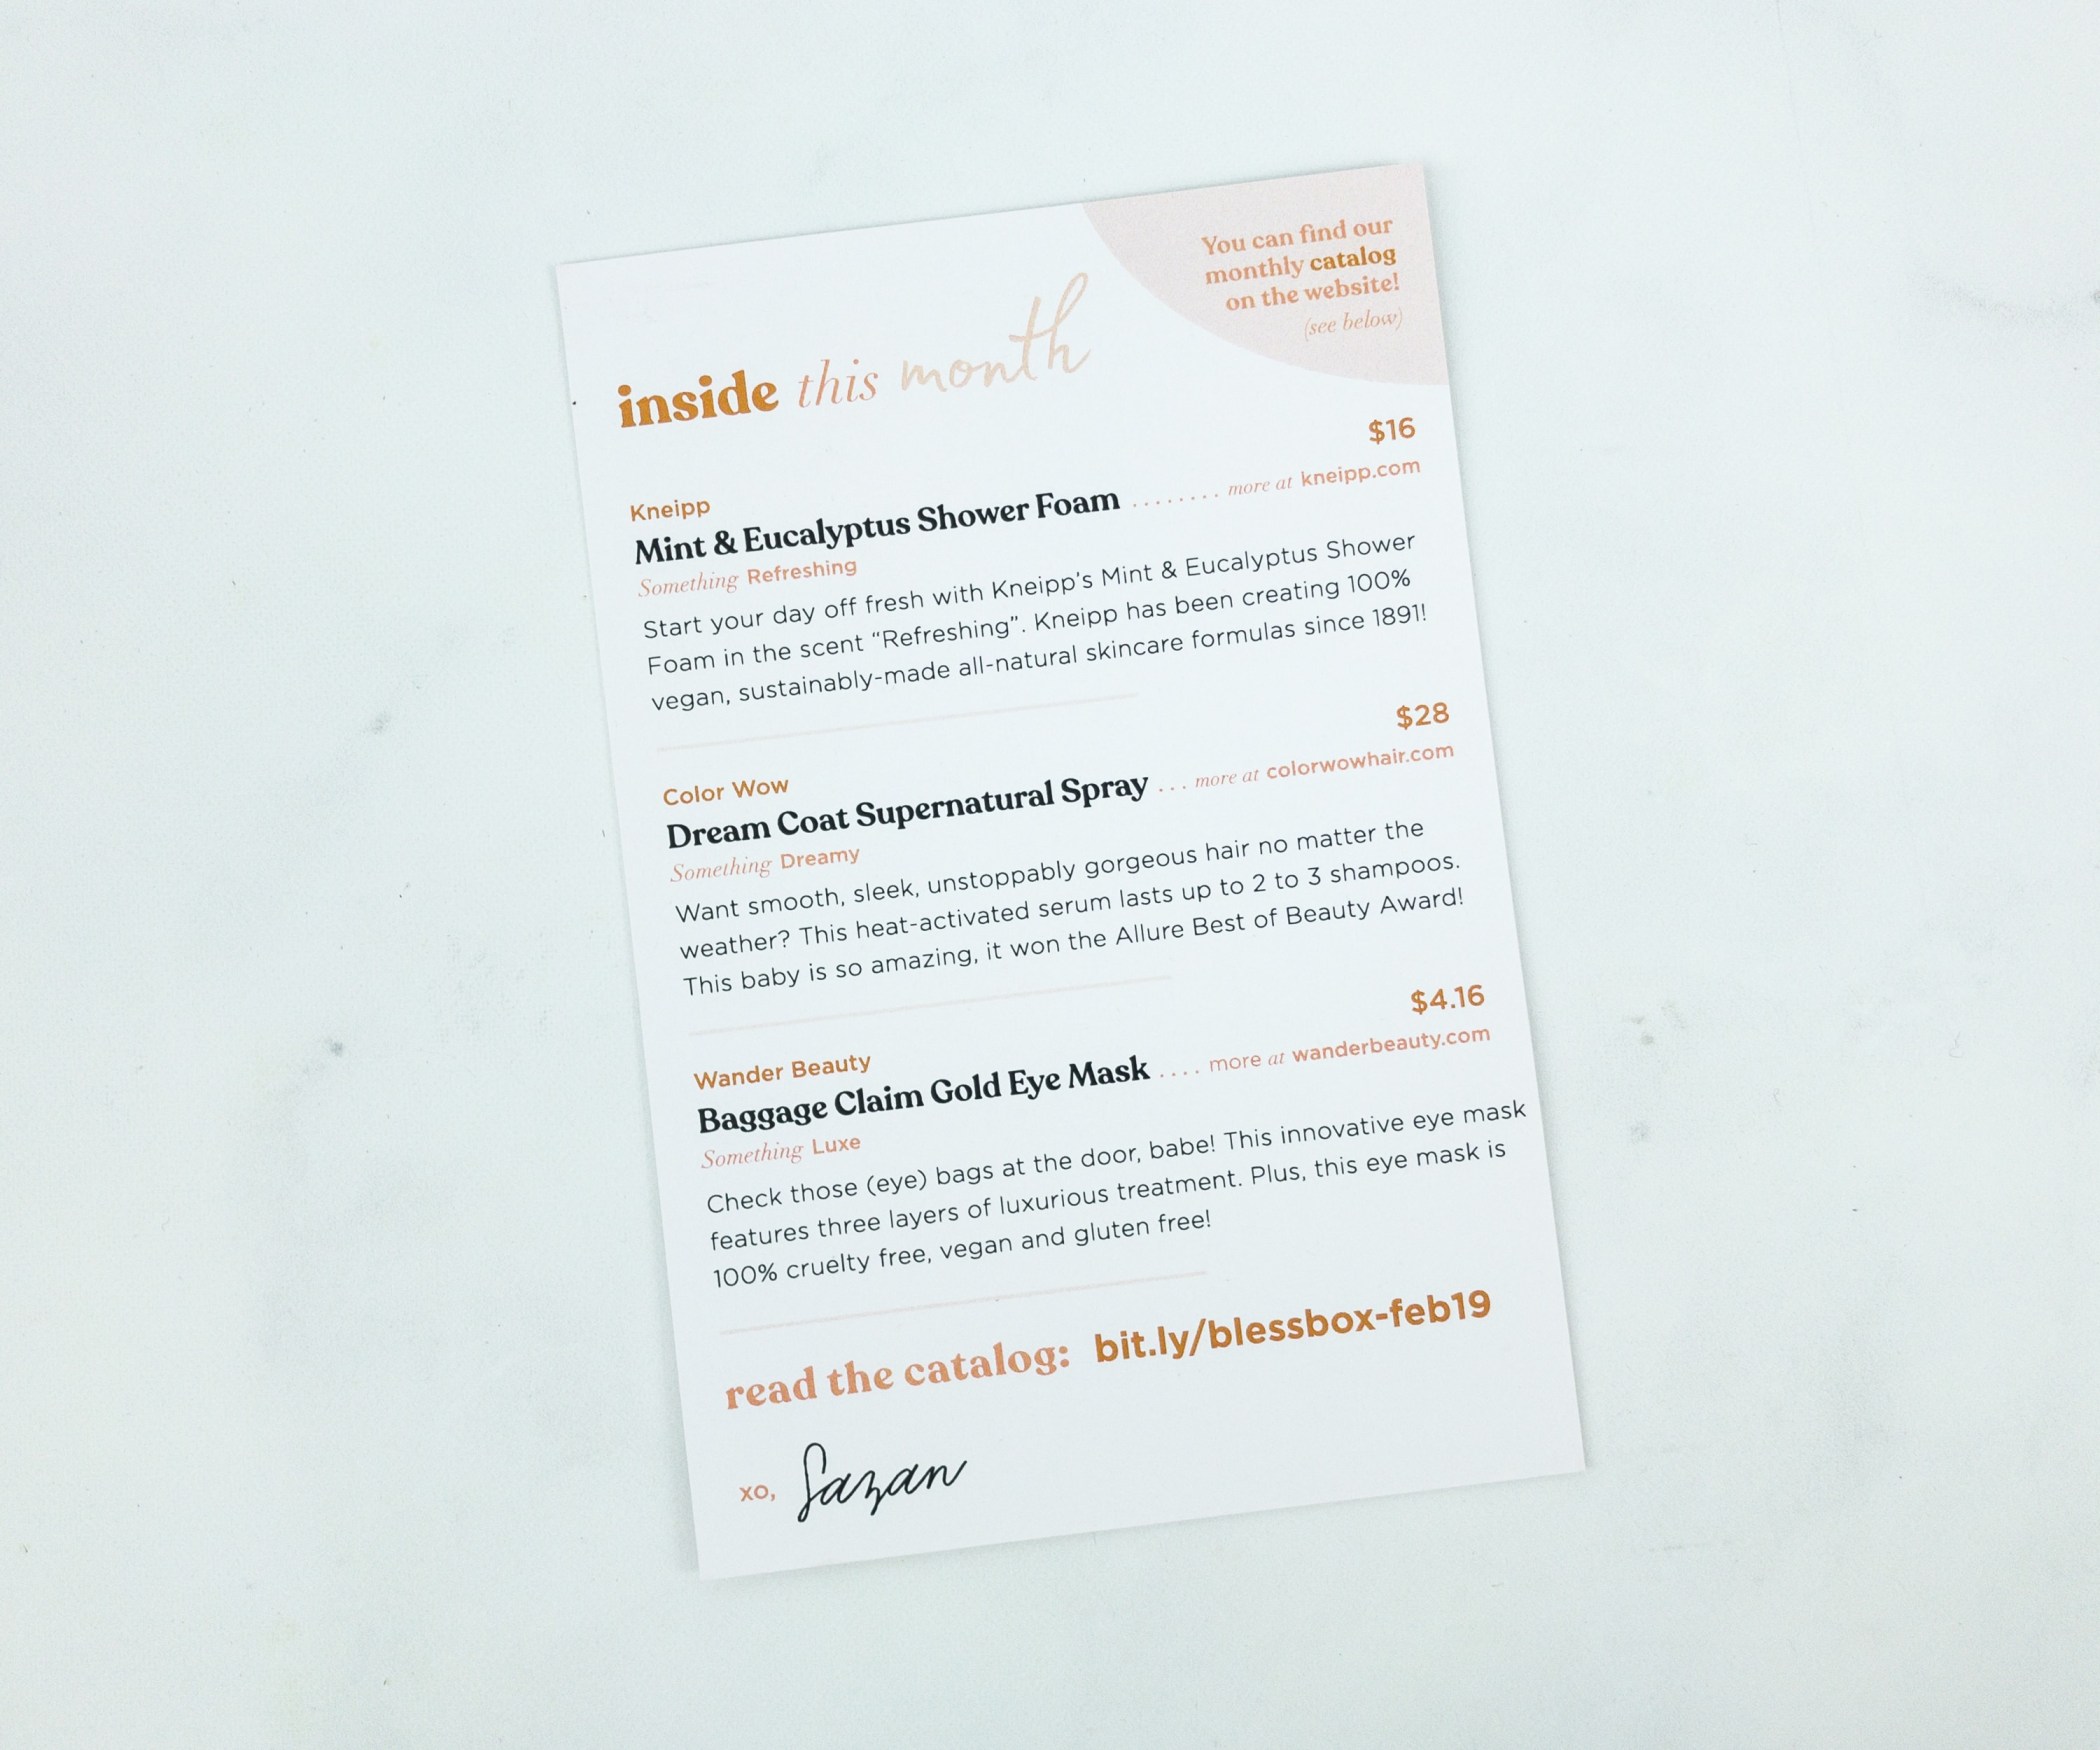 You can find our
monthly catalog
on the website!
(see below)
inside this month
$16
Kneipp
Mint & Eucalyptus Shower Foam ........ more at kneipp.com
Something Refreshing
Start your day off fresh with Kneipp's Mint & Eucalyptus Shower
Foam in the scent “Refreshing”. Kneipp has been creating 100%
vegan, sustainably-made all-natural skincare formulas since 1891!
$28
Color Wow
Dream Coat Supernatural Spray ... more at colorwowhair.com
Something Dreamy
Want smooth, sleek, unstoppably gorgeous hair no matter the
weather? This heat-activated serum lasts up to 2 to 3 shampoos.
This baby is so amazing, it won the Allure Best of Beauty Award!
$4.16
Wander Beauty
Baggage Claim Gold Eye Mask .... more at wanderbeauty.com
Something Luxe
Check those (eye) bags at the door, babe! This innovative eye mask
features three layers of luxurious treatment. Plus, this eye mask is
100% cruelty free, vegan and gluten free!
read the catalog: bit.ly/blessbox-feb19
xo, Sazan